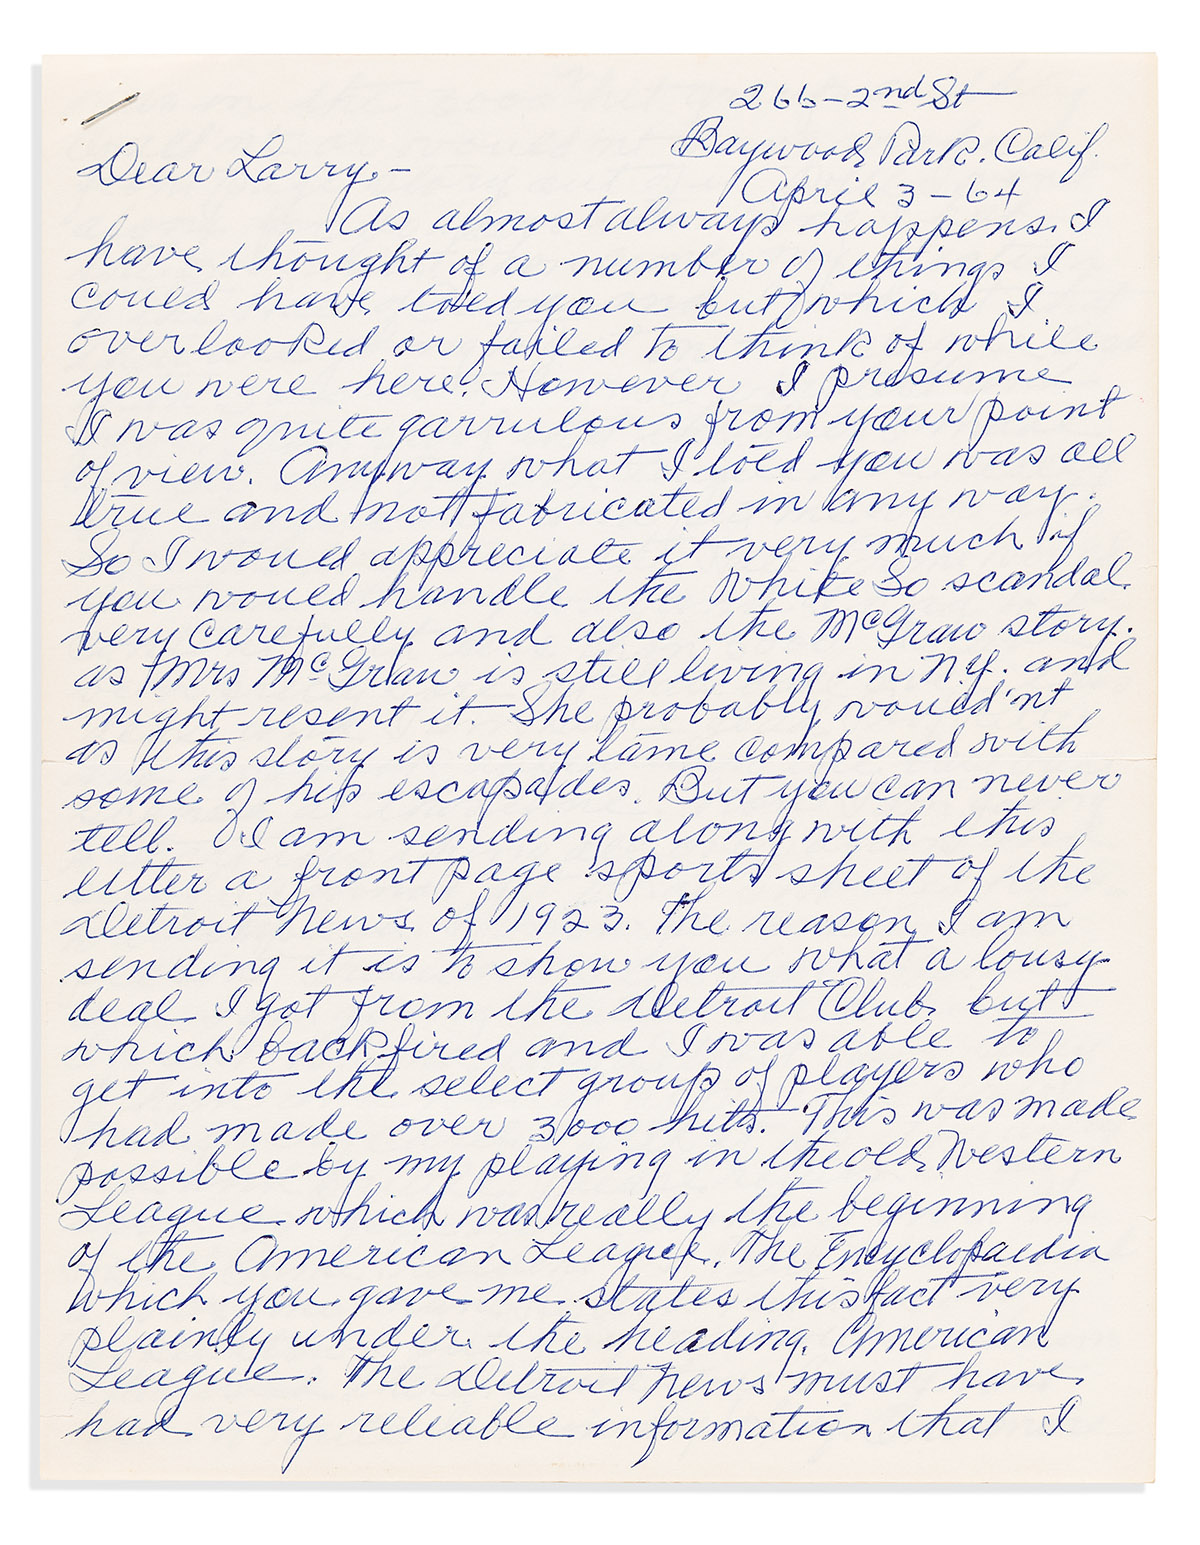 266-2nd St
Baywood Park. Calif.
April 3-64
Dear Larry.-
As almost always happens. I
have thought of a number of things I
could have told you but which I
overlooked or failed to think of while
you were here. However I presume
I was quite garrulous from your point
of view. Anyway what I told you was all
true and not fabricated in any way.
So I would appreciate it very much if
you would handle the White So scandal
very carefully and also the McGraw story.
as Mrs McGraw is still living in N.Y. and
might resent it. She probably would'nt
as this story is very tame compared with
some of his escapades. But you can never
tell. I am sending along with this
letter a front page sports sheet of the
Detroit News of 1923. The reason I am
sending it is to show you what a lousy
deal I got from the Detroit Club but
which backfired and I was able to
get into the select group of players who
had made over 3000 hits. This was made
possible by my playing in the old Western
League which was really the beginning
of the American League. The Encyclopaedia
which you gave me states this fact very
plainly under the heading. American
League. The Detroit News must have
had very reliable information that I